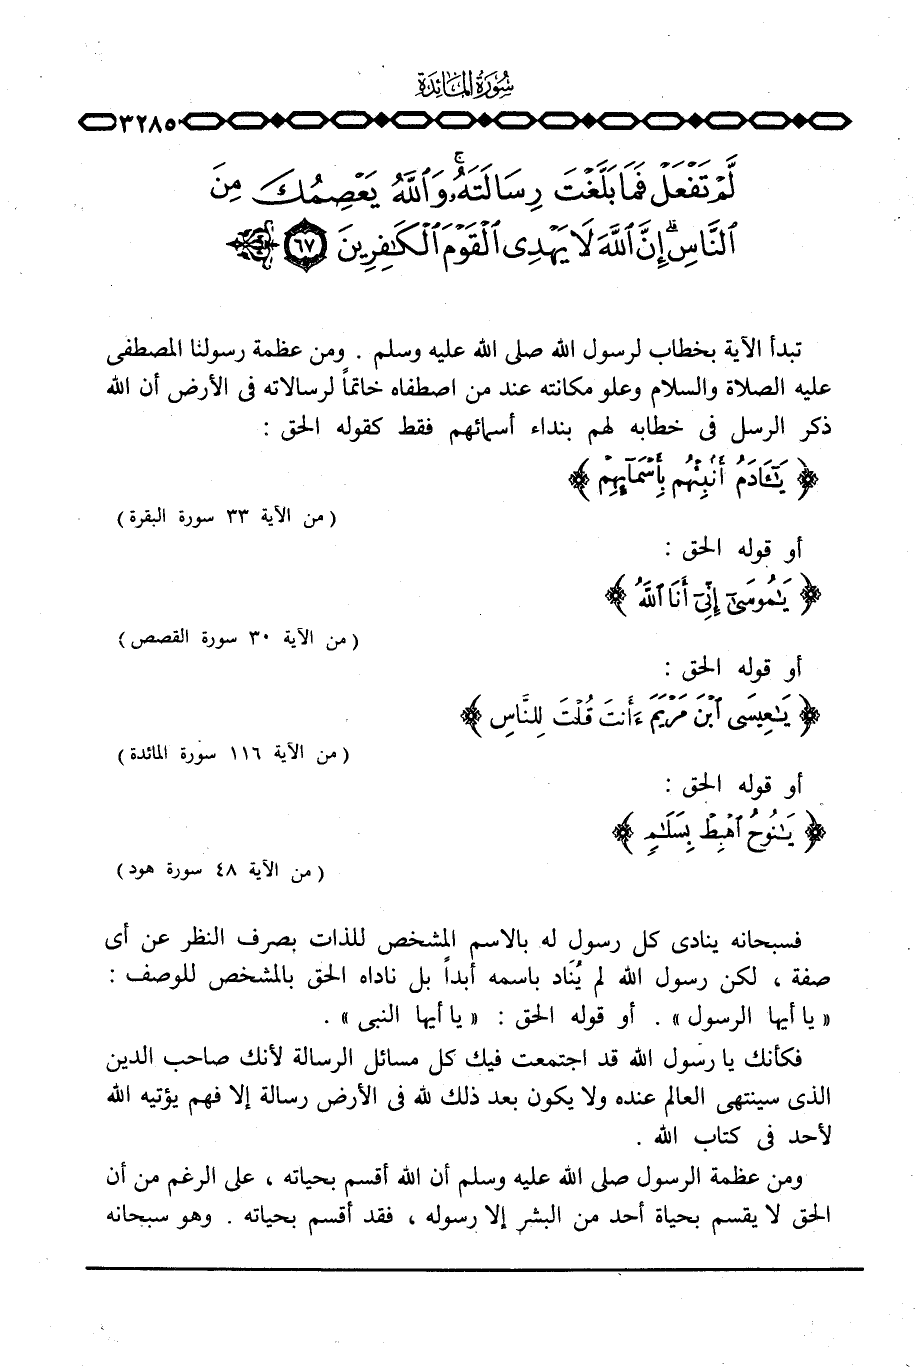 سُورَةُ المَائِدَة
٣٢٨٥
لَّمْ تَفْعَلْ فَمَا بَلَّغْتَ رِسَالَتَهُۥ ۚ وَٱللَّهُ يَعْصِمُكَ مِنَ
ٱلنَّاسِ ۗ إِنَّ ٱللَّهَ لَا يَهْدِى ٱلْقَوْمَ ٱلْكَٰفِرِينَ ٦٧
تبدأ الآية بخطاب لرسول الله صلى الله عليه وسلم . ومن عظمة رسولنا المصطفى
عليه الصلاة والسلام وعلو مكانته عند من اصطفاه خاتماً لرسالاته فى الأرض أن الله
ذكر الرسل فى خطابه لهم بنداء أسمائهم فقط كقوله الحق :
﴿ يَٰٓـَٔادَمُ أَنۢبِئْهُم بِأَسْمَآئِهِمْ ﴾
( من الآية ٣٣ سورة البقرة )
أو قوله الحق :
﴿ يَٰمُوسَىٰٓ إِنِّىٓ أَنَا ٱللَّهُ ﴾
( من الآية ٣٠ سورة القصص )
أو قوله الحق :
﴿ يَٰعِيسَى ٱبْنَ مَرْيَمَ ءَأَنتَ قُلْتَ لِلنَّاسِ ﴾
( من الآية ١١٦ سورة المائدة )
أو قوله الحق :
﴿ يَٰنُوحُ ٱهْبِطْ بِسَلَٰمٍ ﴾
( من الآية ٤٨ سورة هود )
فسبحانه ينادى كل رسول له بالاسم المشخص للذات بصرف النظر عن أى
صفة ، لكن رسول الله لم يُنَاد باسمه أبداً بل ناداه الحق بالمشخص للوصف :
« يا أيها الرسول » . أو قوله الحق : « يا أيها النبى » .
فكأنك يا رسول الله قد اجتمعت فيك كل مسائل الرسالة لأنك صاحب الدين
الذى سينتهى العالم عنده ولا يكون بعد ذلك لله فى الأرض رسالة إلا فهم يؤتيه الله
لأحد فى كتاب الله .
ومن عظمة الرسول صلى الله عليه وسلم أن الله أقسم بحياته ، على الرغم من أن
الحق لا يقسم بحياة أحد من البشر إلا رسوله ، فقد أقسم بحياته . وهو سبحانه